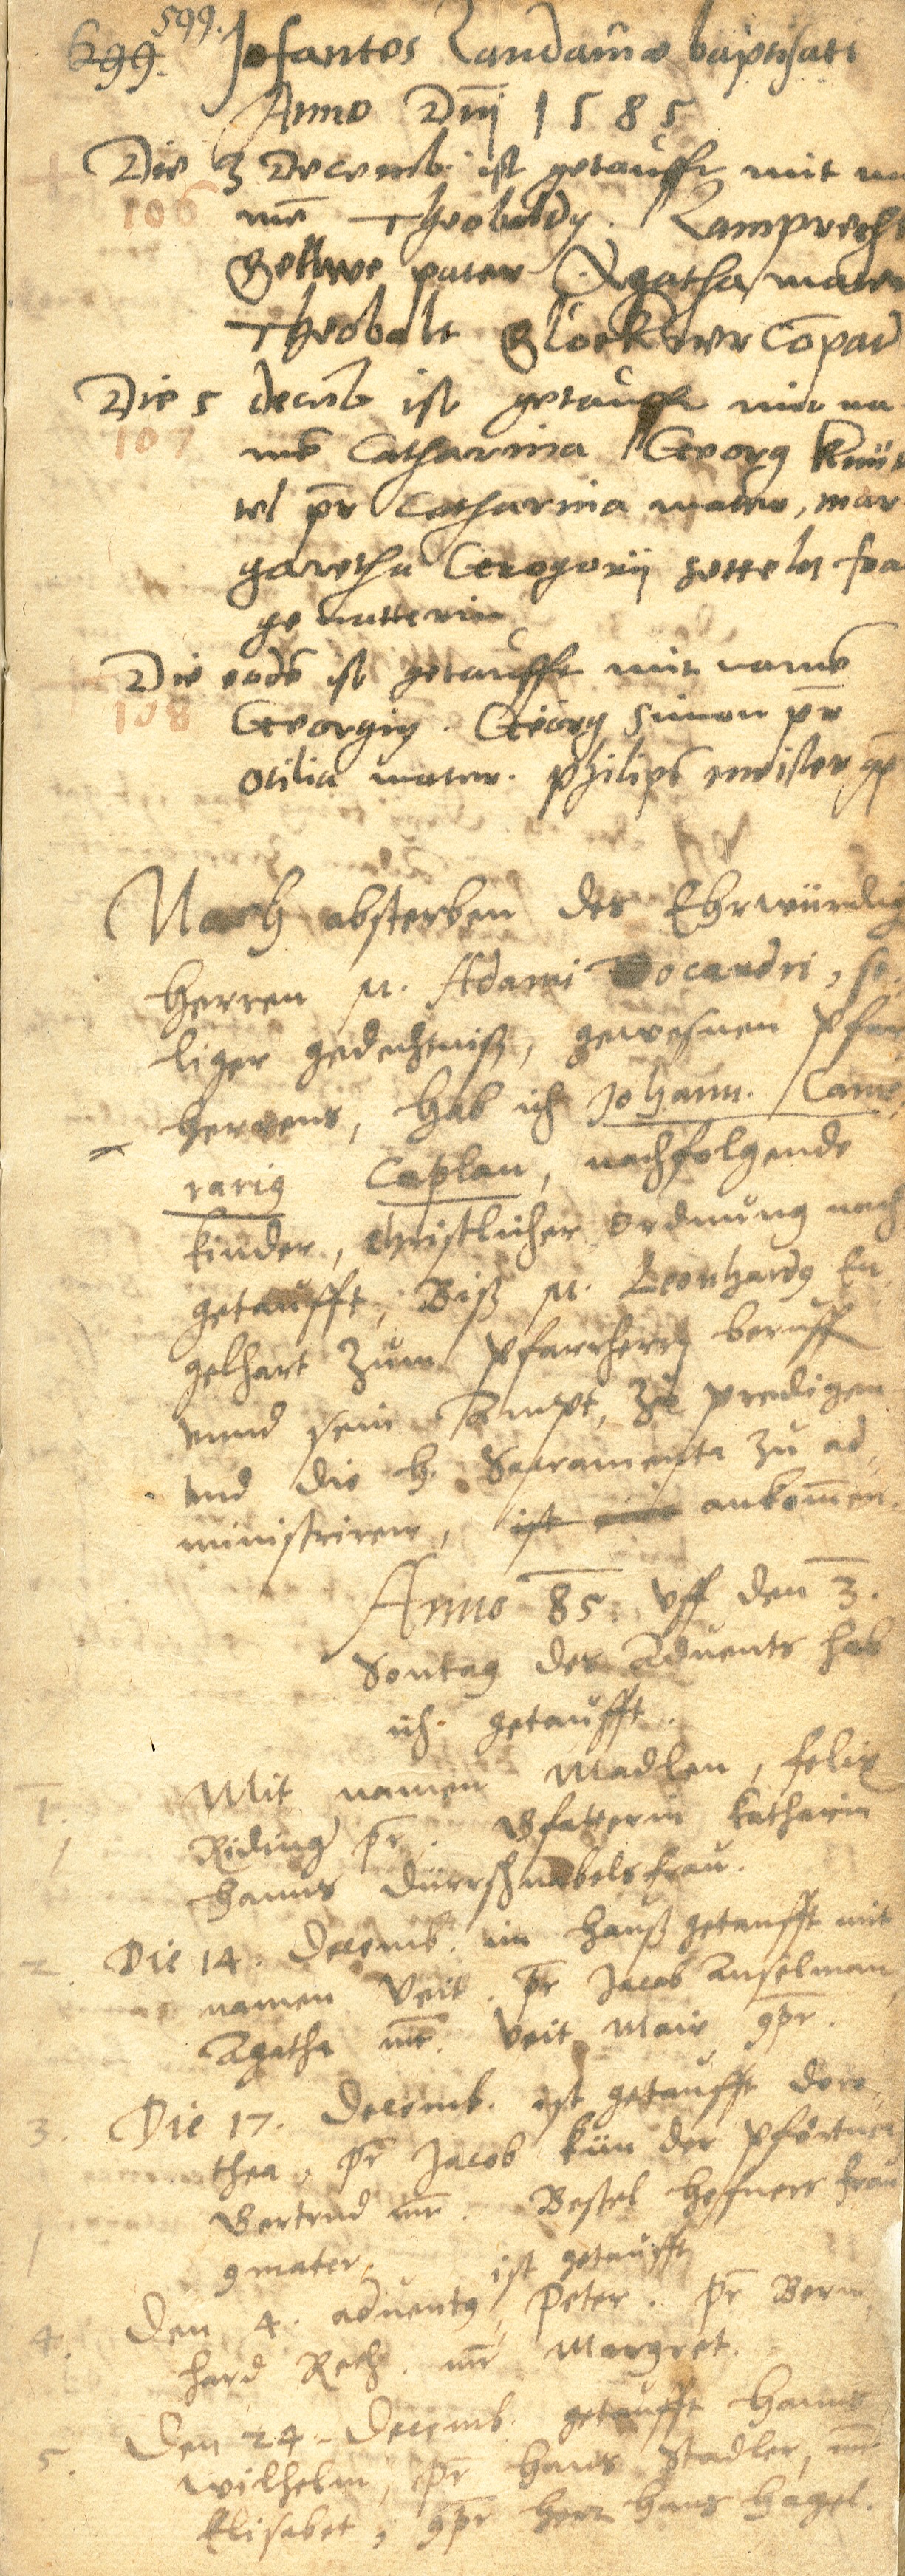 599.
699. Infantes Landaviae baptisati
Anno Dnj 1585
Die 3 Decemb. ist getaufft mit na
106
me Theobaldq. Lamprecht
Gellwe pater Agatha mater
Theobalt Glockner Copar
Die 5 decēb ist getaufft mit na
107
mē Catharina Georg Knüt
tel pr̄ Catharina mater, mar
garetha Gregorij zettels fra
gevatterin
Die eodē ist getaufft mit namē
108
Georgiq. Georg Simon pr̄
Otilia mater. Philips meister gr̄
Nach absterben des Ehrwürdig
Herren M. Adami Vocandri, se,
liger gedechtniß, gewesnen Pfar
herrens, Hab ich Johann. Came,
rariq Caplan, nachfolgende
kinder, Christlicher ordnung nach
getaufft, Biß M. Leonhardq En
gelhart zum Pfarrherrn beruff
unnd sein Ampt, zu predigen
und die h. Sacramenta zu ad,
ministriren, ist ankom̄en.
Anno 85. Uff den 3.
Sontag des Advents hab
ich getaufft.
1. Mit namen Madlen, felix
Riding pr̄. Gfatterin Katharin
Hanns Dürrschnabels frau.
2. Die 14. Decemb. im hauß getaufft mit
namen Veit. pr̄ Jacob Anselman,
Agatha mr̄. Veit Mair 9pr̄.
3. Die 17. Decemb. ist getaufft doro,
thea, pr̄ Jacob Kün der pförtner
Gertrud mr̄. Bestel Hefners frau
9mater.
ist getaufft
4. Den 4. adventq Peter. pr̄ Bern,
hard Rech. mr̄ Margret.
5. Den 24. Decemb. getaufft Hanns
wilhelm, pr̄ Hans Stadler, mr̄
Elisabet, 9pr̄ herr Hans Hagel.